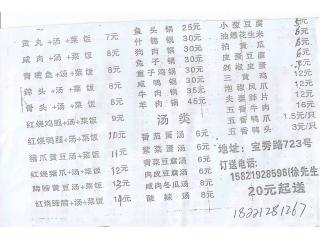 贡丸+汤+菜饭 7元
咸肉+汤+菜饭 8元
+汤+菜饭 8元
+汤+菜饭 8元
骨头+汤+菜饭 8元
红烧鸡腿+汤+菜饭
红烧鸭腿+汤+菜饭 10元
猪爪黄豆汤+菜饭 11元
红烧猪爪+汤+菜饭
蹄膀黄豆汤+菜饭
红烧蹄膀+汤+菜饭
鱼头锅 25元
什锦锅 30元
狗肉锅 30元
鱼锅 30元
童子鸡锅 30元
咸鸭锅 30元
牛肉锅 35元
羊肉锅 45元
汤类
番茄蛋汤 6元
紫菜蛋汤 6元
榨菜蛋汤 6元
青菜豆腐汤 6元
肉丝豆腐汤 6元
咸肉冬瓜汤 8元
酸辣汤 8元
小葱豆腐
油爆花生米
拍黄瓜
皮蛋豆腐
三黄鸡 12元
泡椒凤爪 12元
夫妻肺片 12元
五香牛肉 16元
五香鸭爪 1.5元/只
五香鸭头 3元/只
地址:宝秀路723号
订送电话:
15821928598(徐先生)
20元起送
18221281267